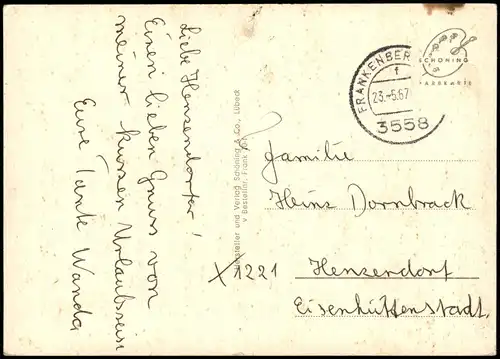 Liebe Henzendorfer!
Einen lieben Gruss von
meiner kurzen Urlaubsreise
Eure Tante Wanda
Hersteller und Verlag Schöning & Co., Lübeck
Bestellnr. Frank
FRANKENBER
f
23.-5.67
3558
SCHÖNING
Familie
Heinz Dornbrack
X 1221
Henzendorf
Eisenhüttenstadt.